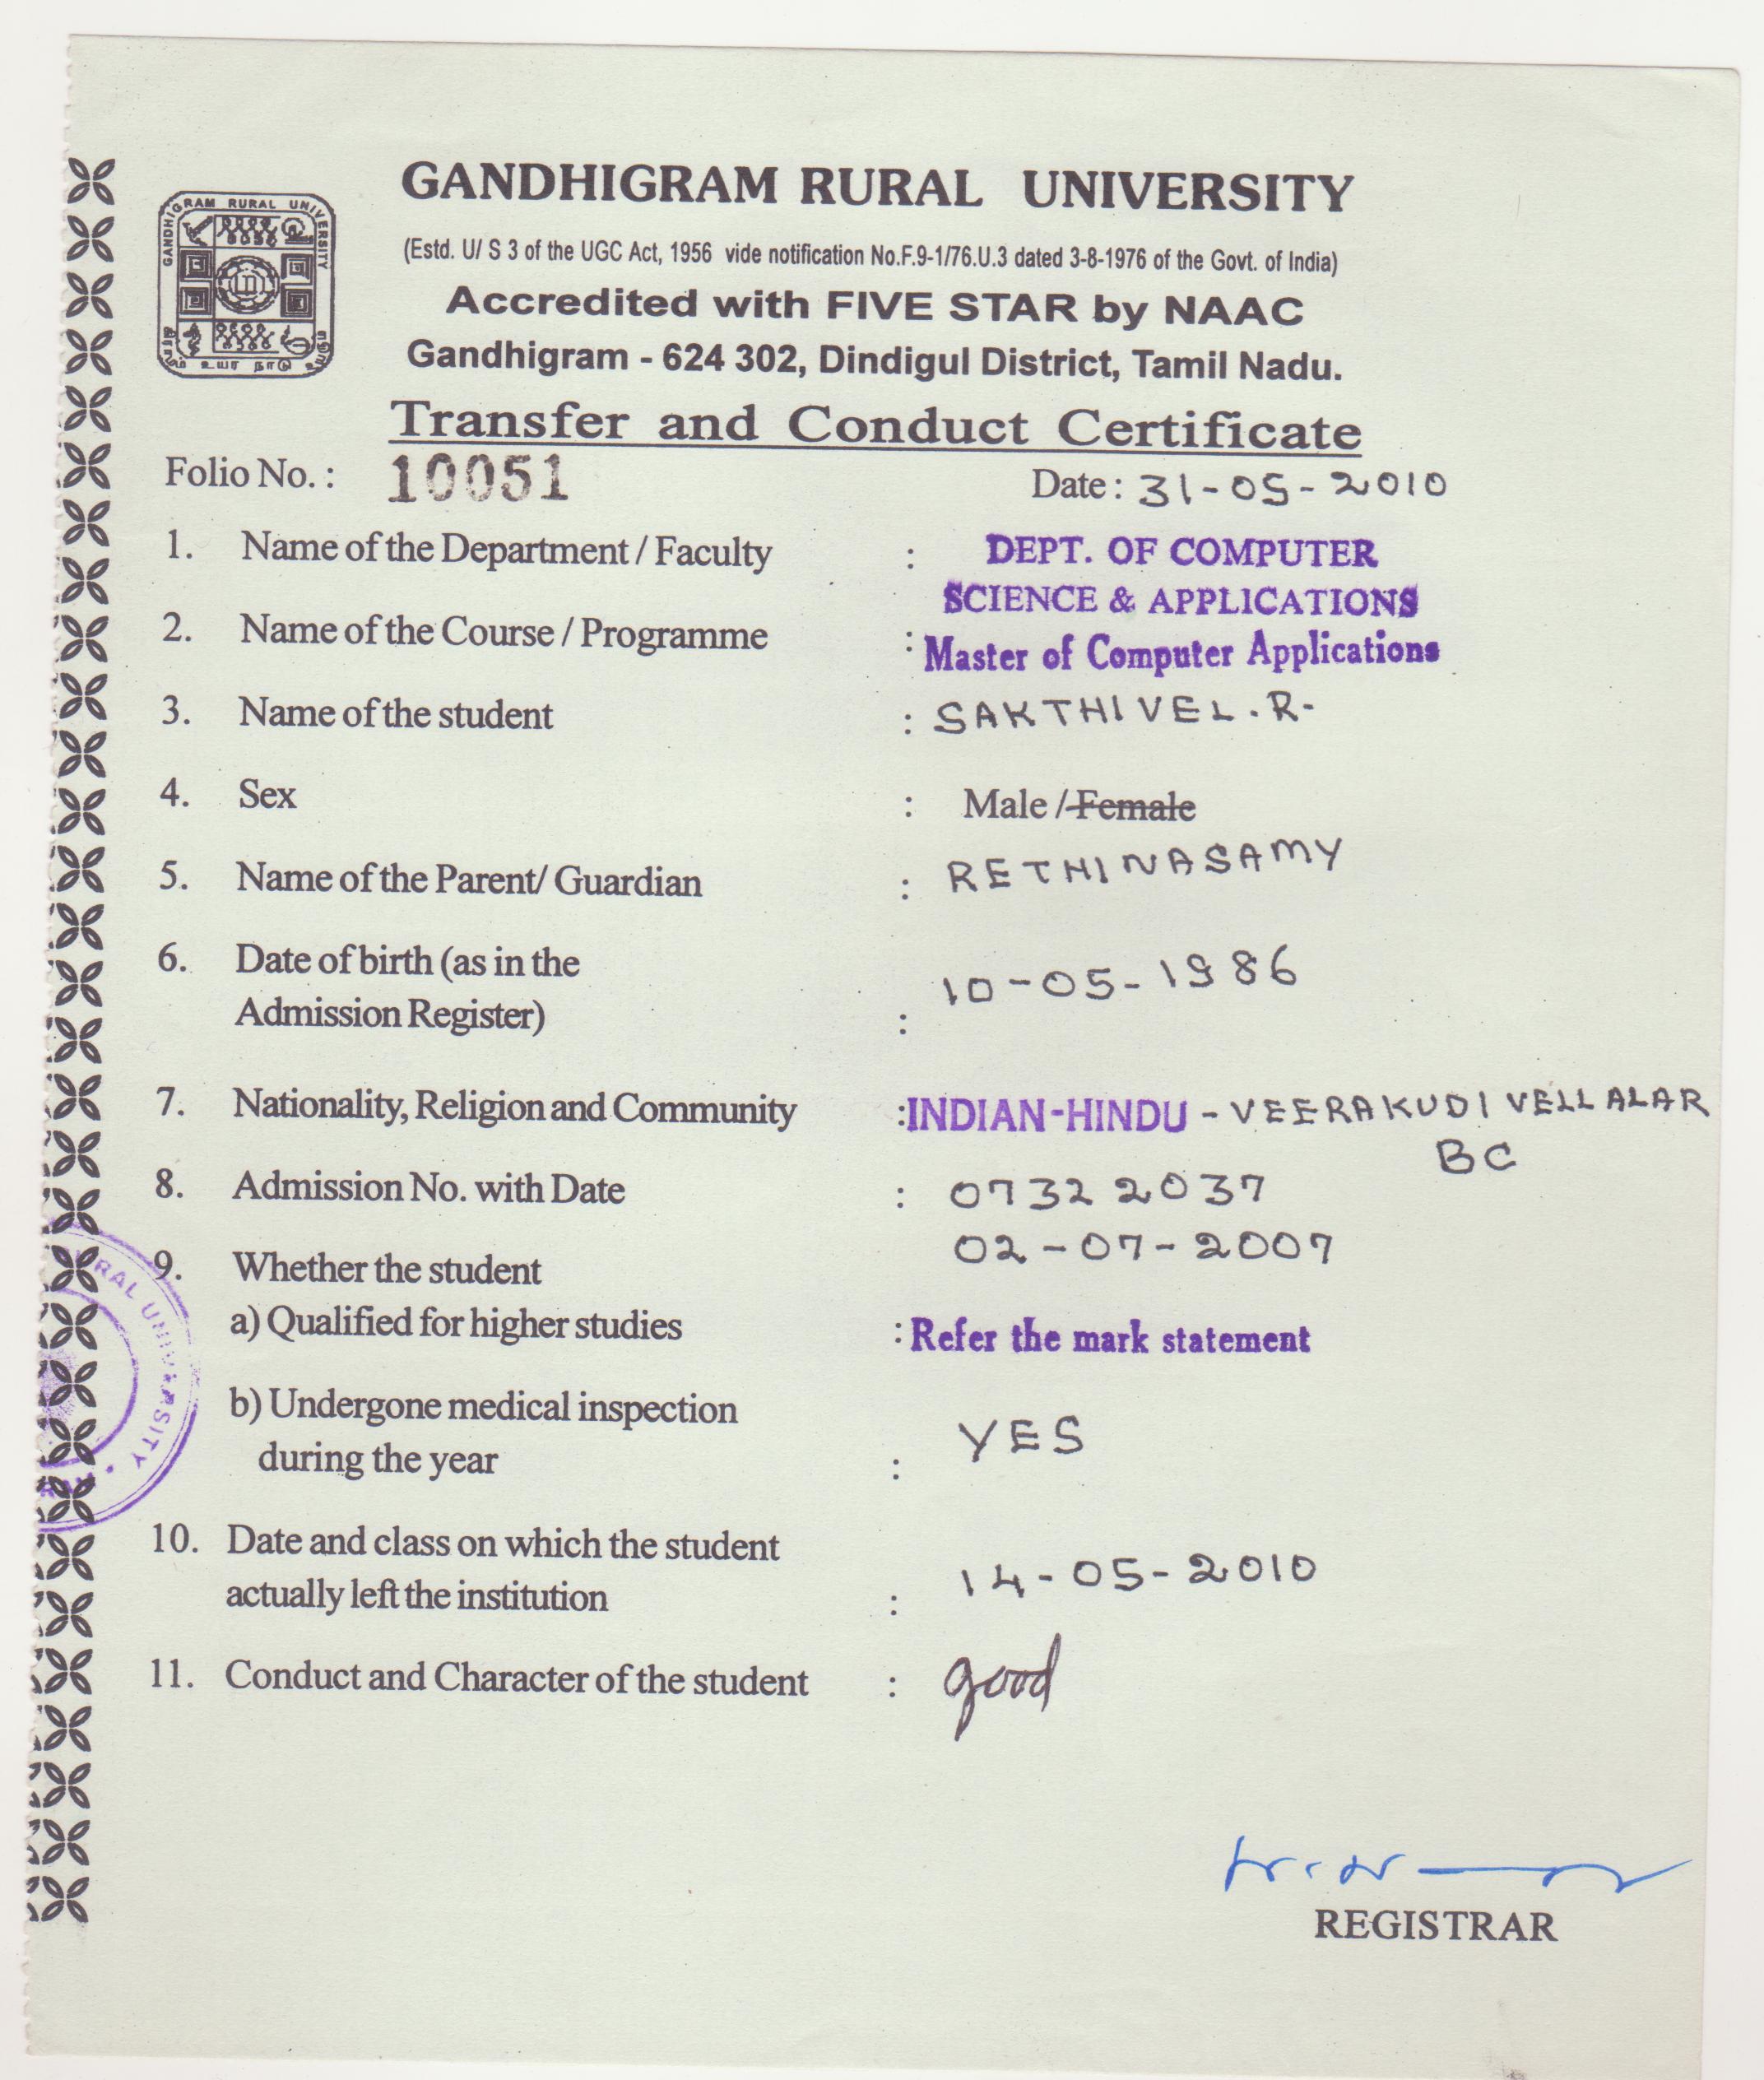 GANDHIGRAM RURAL UNIVERSITY
GANDHIGRAM RURAL UNIVERSITY
(Estd. U/ S 3 of the UGC Act, 1956 vide notification No.F.9-1/76.U.3 dated 3-8-1976 of the Govt. of India)
Accredited with FIVE STAR by NAAC
Gandhigram - 624 302, Dindigul District, Tamil Nadu.
Transfer and Conduct Certificate
Folio No. : 10051 Date : 31-05-2010
1. Name of the Department / Faculty : DEPT. OF COMPUTER
SCIENCE & APPLICATIONS
2. Name of the Course / Programme : Master of Computer Applications
3. Name of the student : SAKTHIVEL.R.
4. Sex : Male / Female
5. Name of the Parent/ Guardian : RETHINASAMY
6. Date of birth (as in the
Admission Register) : 10-05-1986
7. Nationality, Religion and Community : INDIAN-HINDU - VEERAKUDI VELLALAR
BC
8. Admission No. with Date : 07322037
02-07-2007
9. Whether the student
a) Qualified for higher studies : Refer the mark statement
b) Undergone medical inspection
during the year : YES
10. Date and class on which the student
actually left the institution : 14-05-2010
11. Conduct and Character of the student : good
RAL UNIVERSITY
REGISTRAR